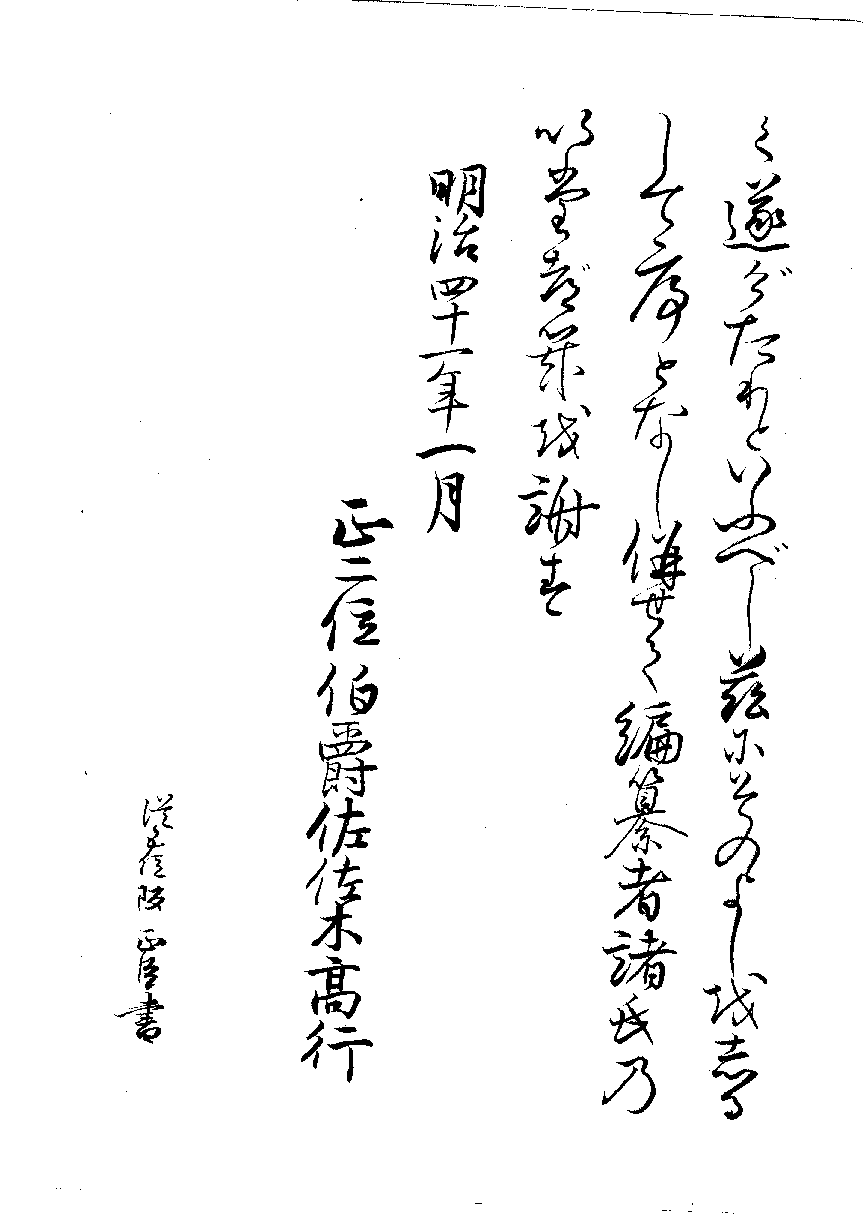 く遂げたりといふべし茲にそのよしを志る
して序となし併せて編纂者諸氏の
いたづきを謝す
明治四十一年一月
正二位伯爵佐佐木高行
阪正臣書